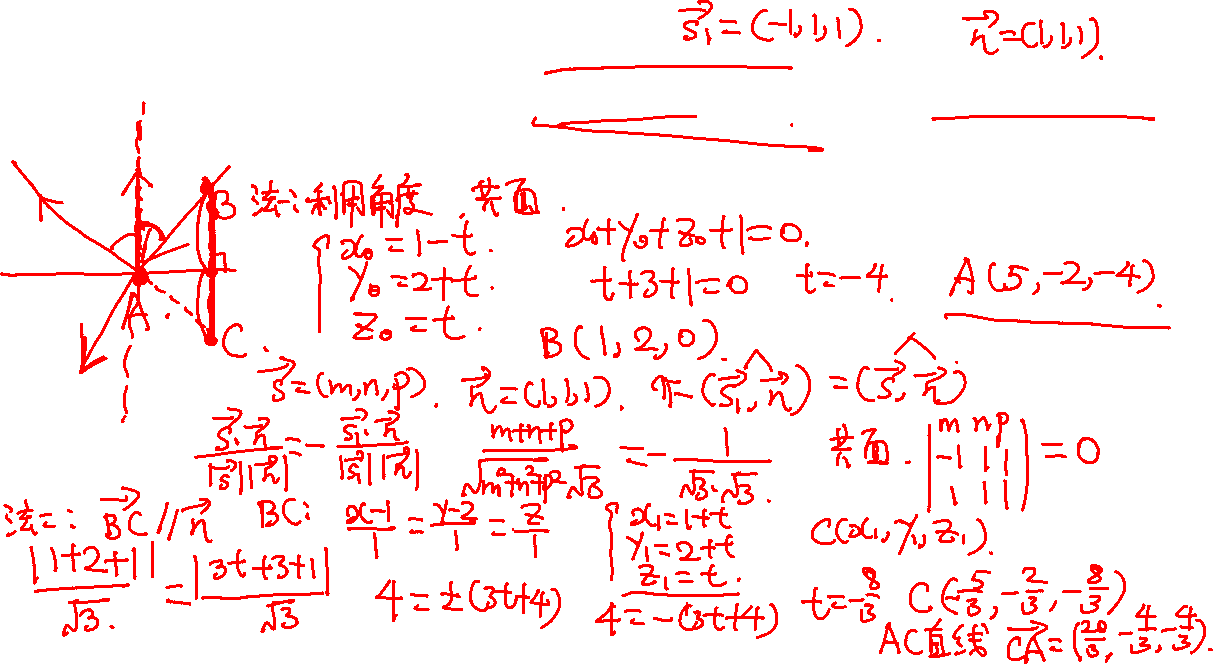 s⃗₁=(-1,1,1). n⃗=(1,1,1).
B
A.
C.
法一:利用角度,共面.
{ x₀=1-t. y₀=2+t. z₀=t.
x₀+y₀+z₀+1=0.
t+3+1=0 t=-4. A(5,-2,-4).
B(1,2,0).
s⃗=(m,n,p). n⃗=(1,1,1). π-(s⃗₁,n⃗)=(s⃗,n⃗)
s⃗·n⃗/|s⃗||n⃗|=-s⃗₁·n⃗/|s⃗₁||n⃗| m+n+p/√m²+n²+p²√3=-1/√3·√3. 共面. |m n p; -1 1 1; 1 1 1|=0
法二: BC⃗∥n⃗ BC: x-1/1=y-2/1=z/1 { x₁=1+t y₁=2+t z₁=t. C(x₁,y₁,z₁).
|1+2+1|/√3.=|3t+3+1|/√3 4=±(3t+4) 4=-(3t+4) t=-8/3 C(-5/3,-2/3,-8/3)
AC直线 CA⃗=(20/3,-4/3,-4/3).